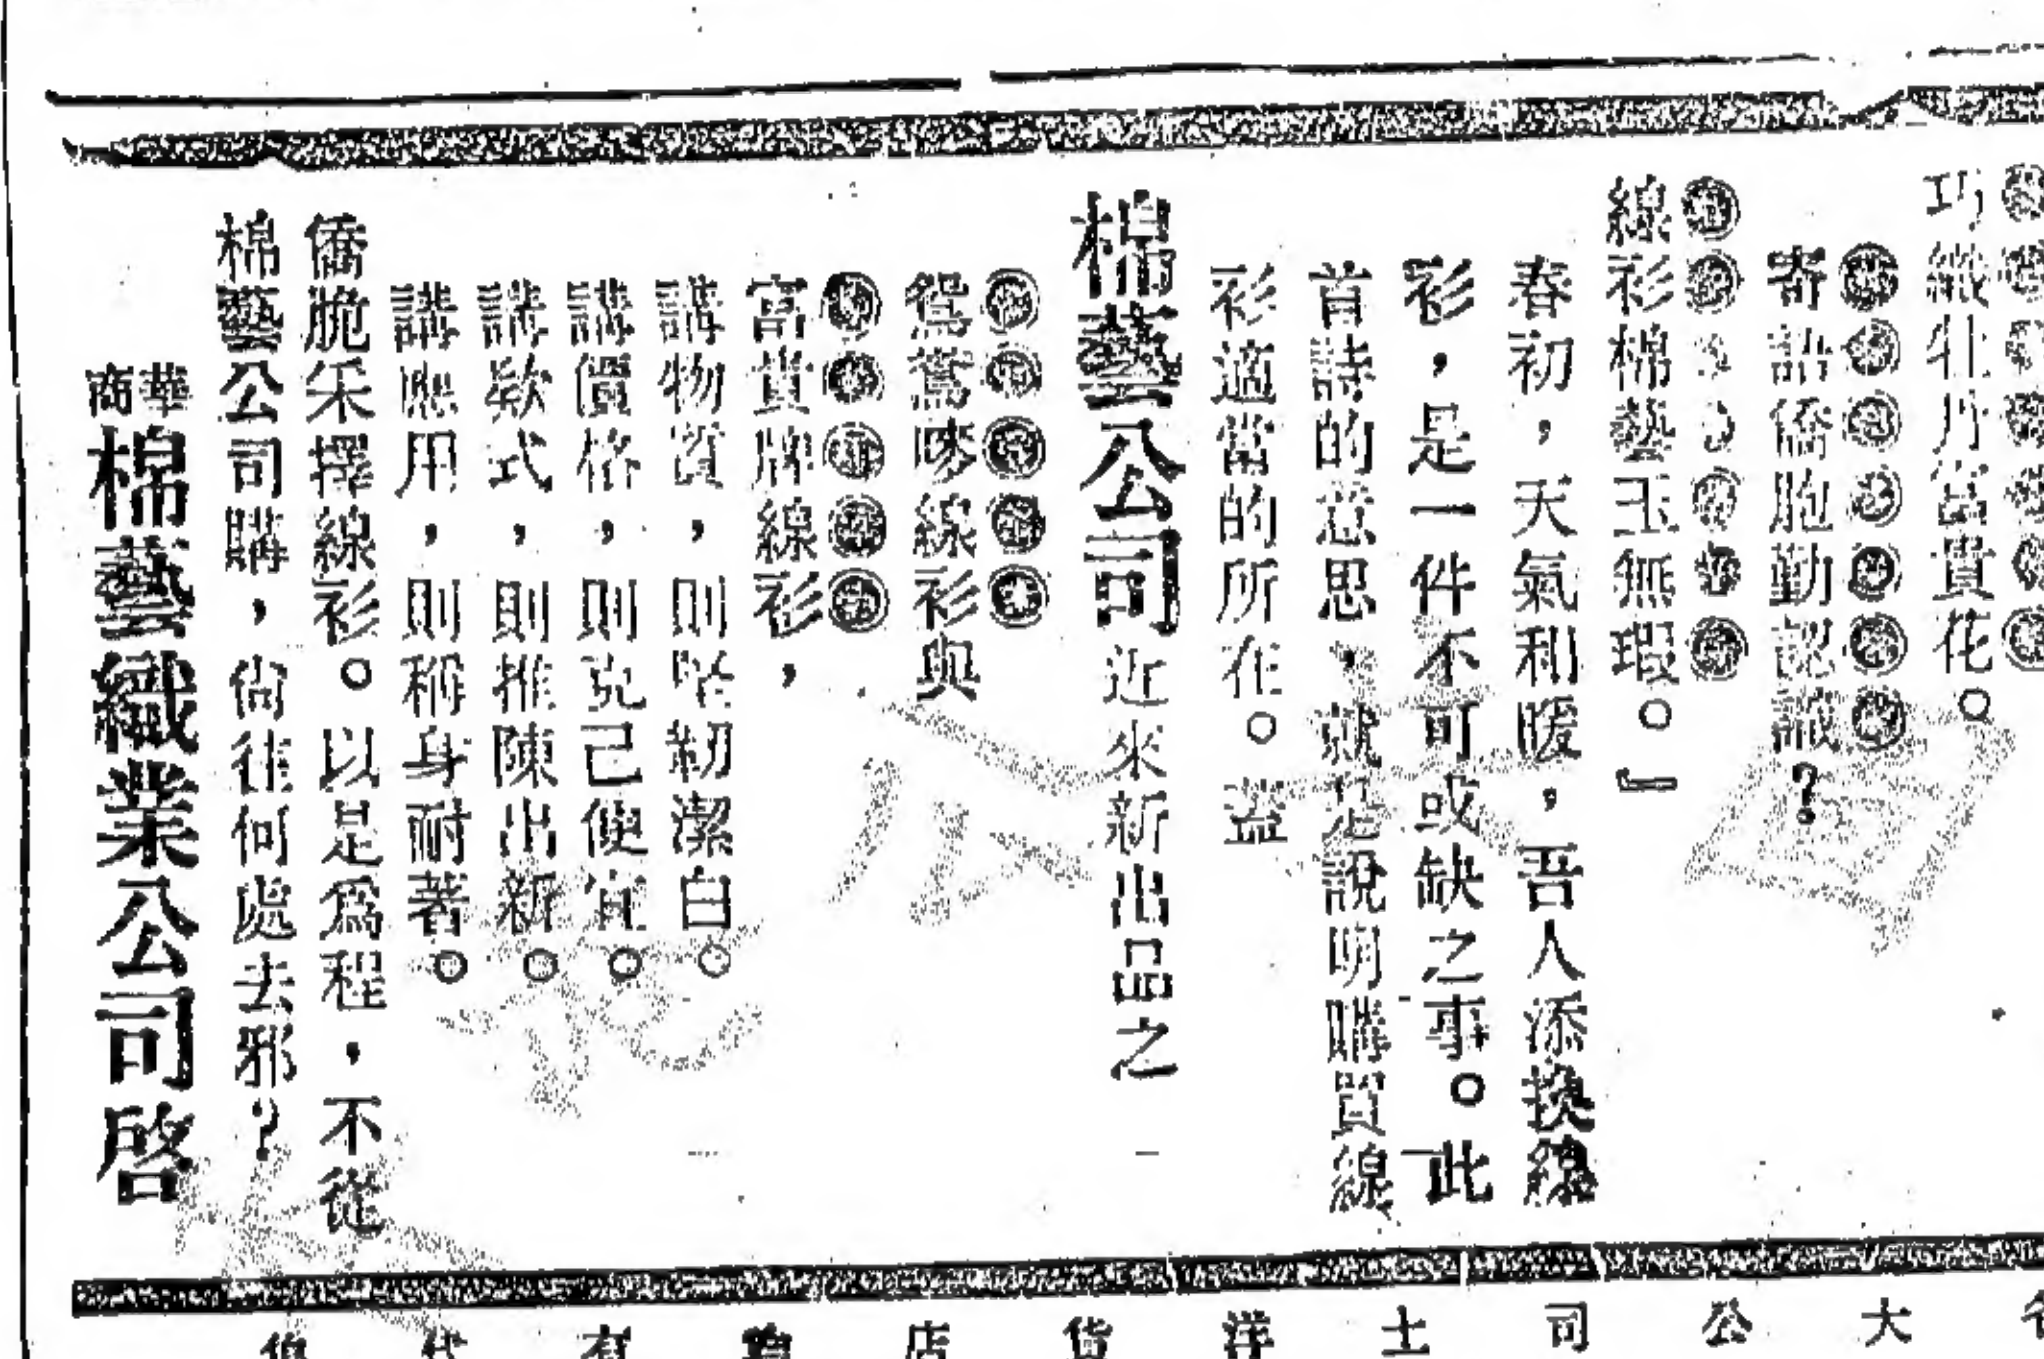 巧織牡丹富貴花。
寄語僑胞勤認識?
線衫棉藝玉無瑕。』
春初,天氣和暖,吾人添換線
衫,是一件不可或缺之事。此
首詩的意思,就是說明購買線
衫適當的所在。盖
棉藝公司近來新出品之
鴛鴦嘜線衫與
富貴牌線衫,
講物質,則 韌潔白。
講價格,則克己便宜。
講欵式,則推陳出新。
講應用,則稱身耐著。
僑胞采擇線衫。以是爲程,不從
棉藝公司購,尙往何處去邪?
華商棉藝織業公司啓
大公司土洋貨店 有代